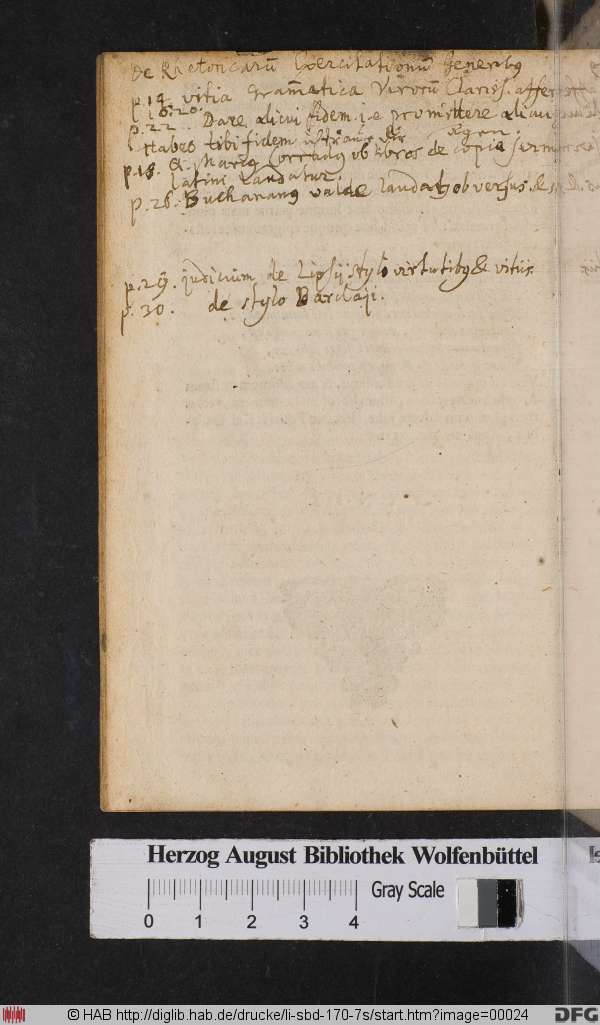 De Rhetoricarū Exercitationū generibq
p. 14 vitia Gram̄atica Virorū Clariss. affer
16. 20.
p. 22. Dare alicui fidem i.e promittere alicui
Habeo tibi fidem
p. 18. & Marcq Corradq ob libros de copia sermonis
latini Laudatur.
p. 28. Buchananq valde laudatq ob versus.
p. 29. judicium de Lipsij stylo virtutibq & vitiis
p. 30. de stylo Barclaji.
Herzog August Bibliothek Wolfenbüttel
0 1 2 3 4 Gray Scale
© HAB http://diglib.hab.de/drucke/li-sbd-170-7s/start.htm?image=00024
DFG